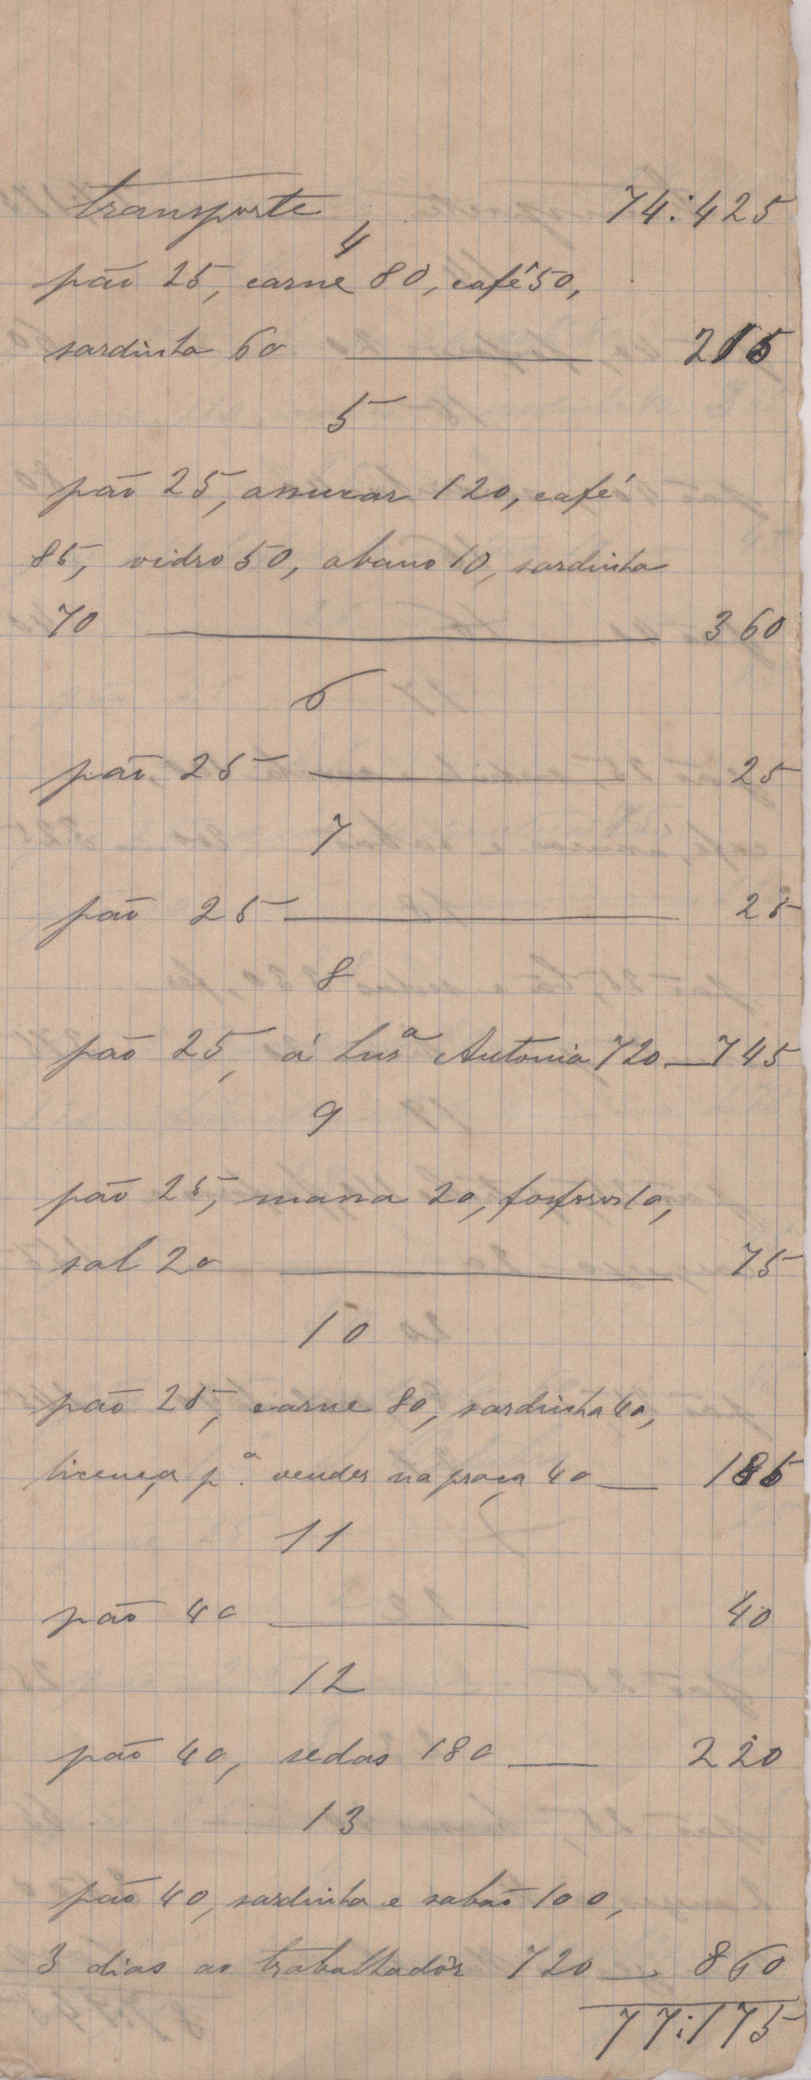 transporte 74:425
4
pão 25, carne 80, café 50,
sardinha 60 215
5
pão 25, assucar 120, café
85, vidro 50, abano 10, sardinha
70 360
6
pão 25 25
7
pão 25 25
8
pão 25, á Lusª Antonia 720 745
9
pão 25, massa 20, fosforos 10,
sal 20 75
10
pão 25, carne 80, sardinha 40,
licença pª. vender na praça 40 185
11
pão 40 40
12
pão 40, sedas 180 220
13
pão 40, sardinha e sabão 100,
3 dias ao trabalhador 720 860
77:175